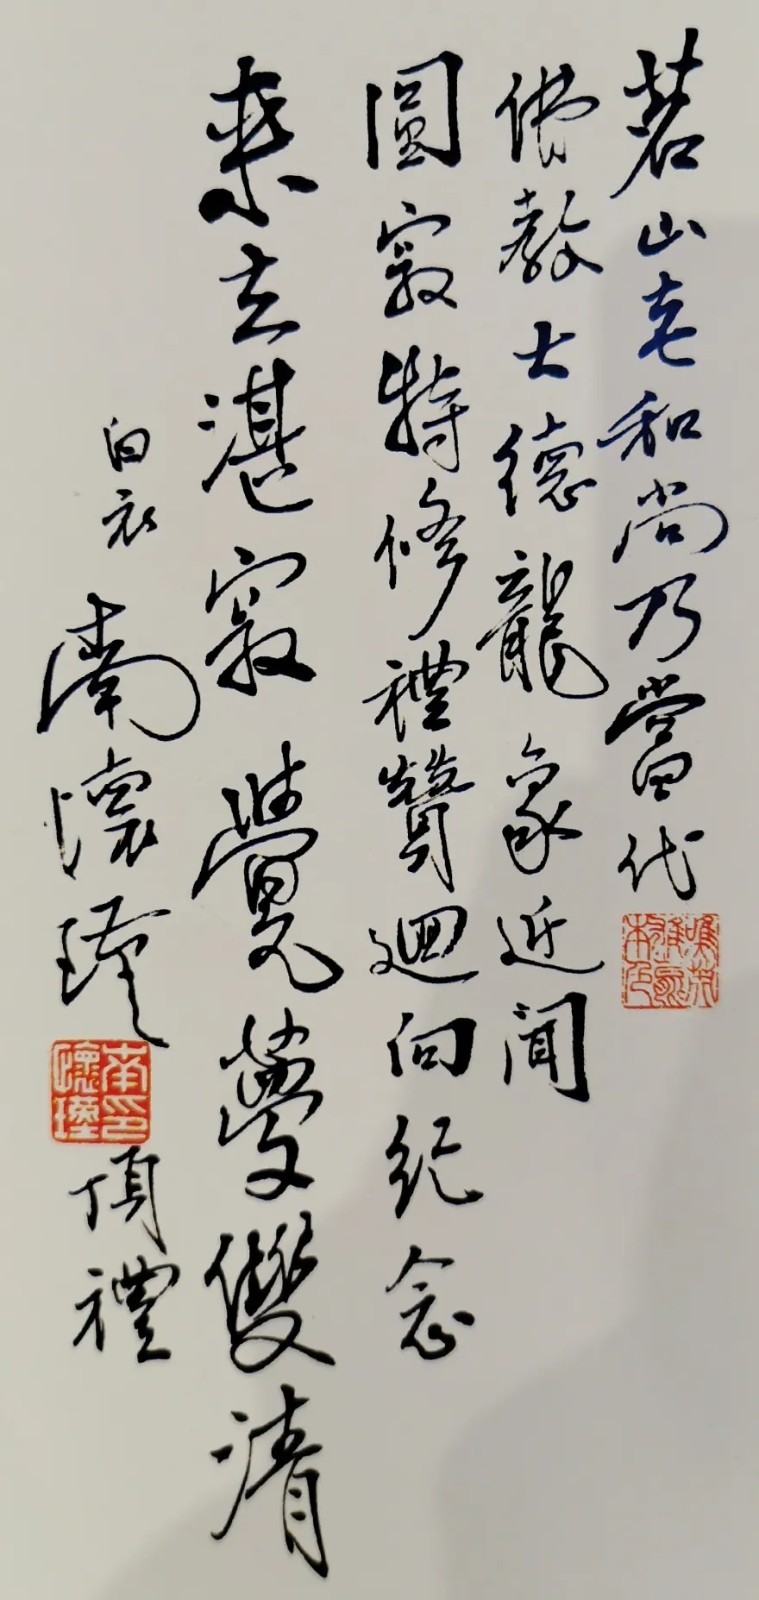 茗山老和尚乃當代
佛教大德龍象近聞
圓寂特修禮贊迴向紀念
來去湛寂覺夢雙清
白衣南懷瑾
南印懷瑾
頂禮